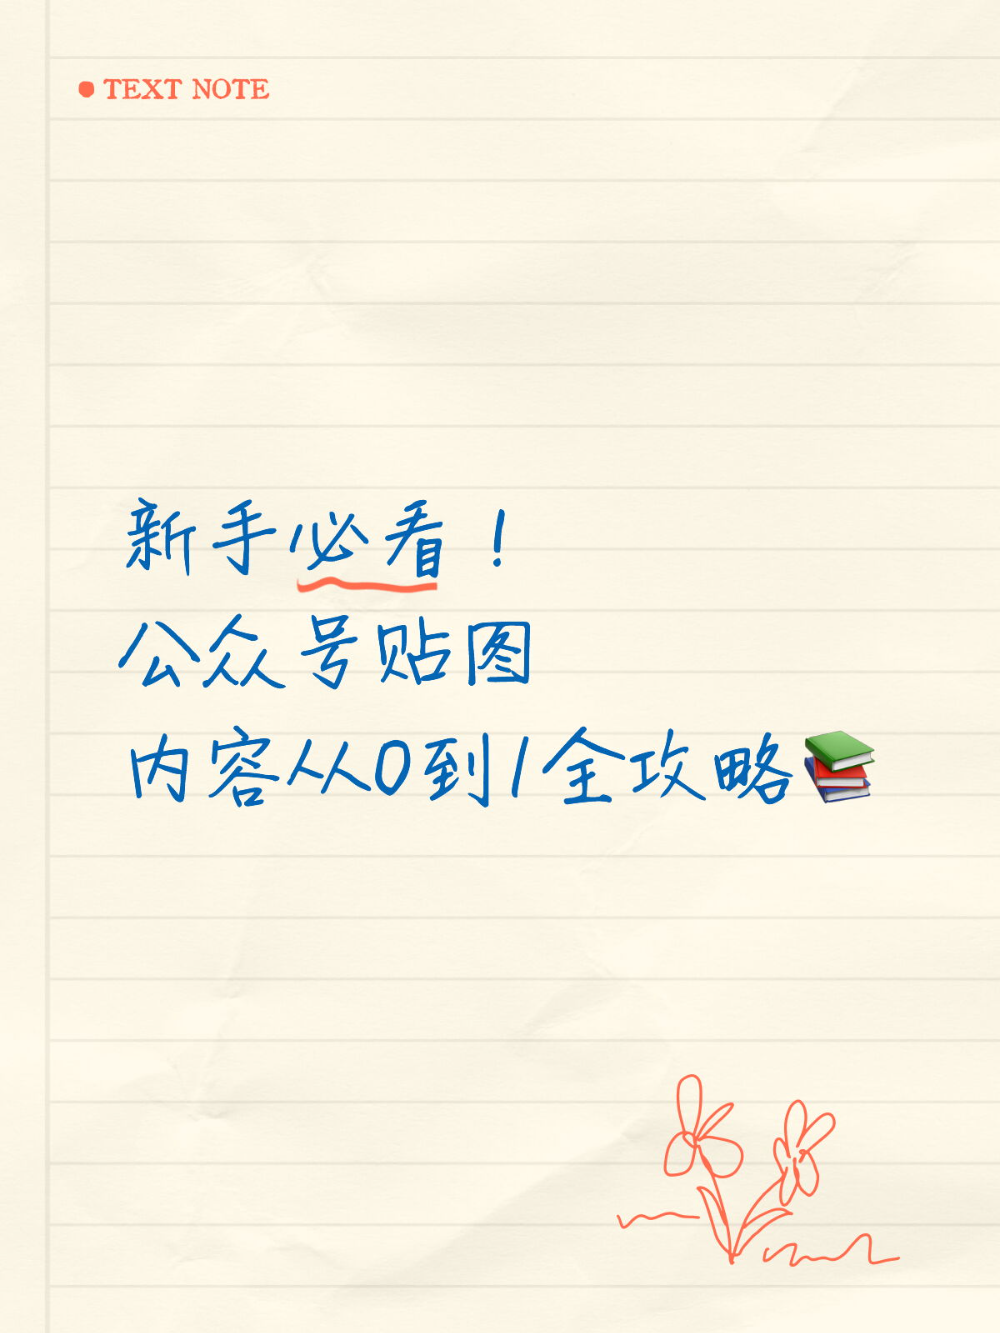 TEXT NOTE
新手必看！
公众号贴图
内容从0到1全攻略📚